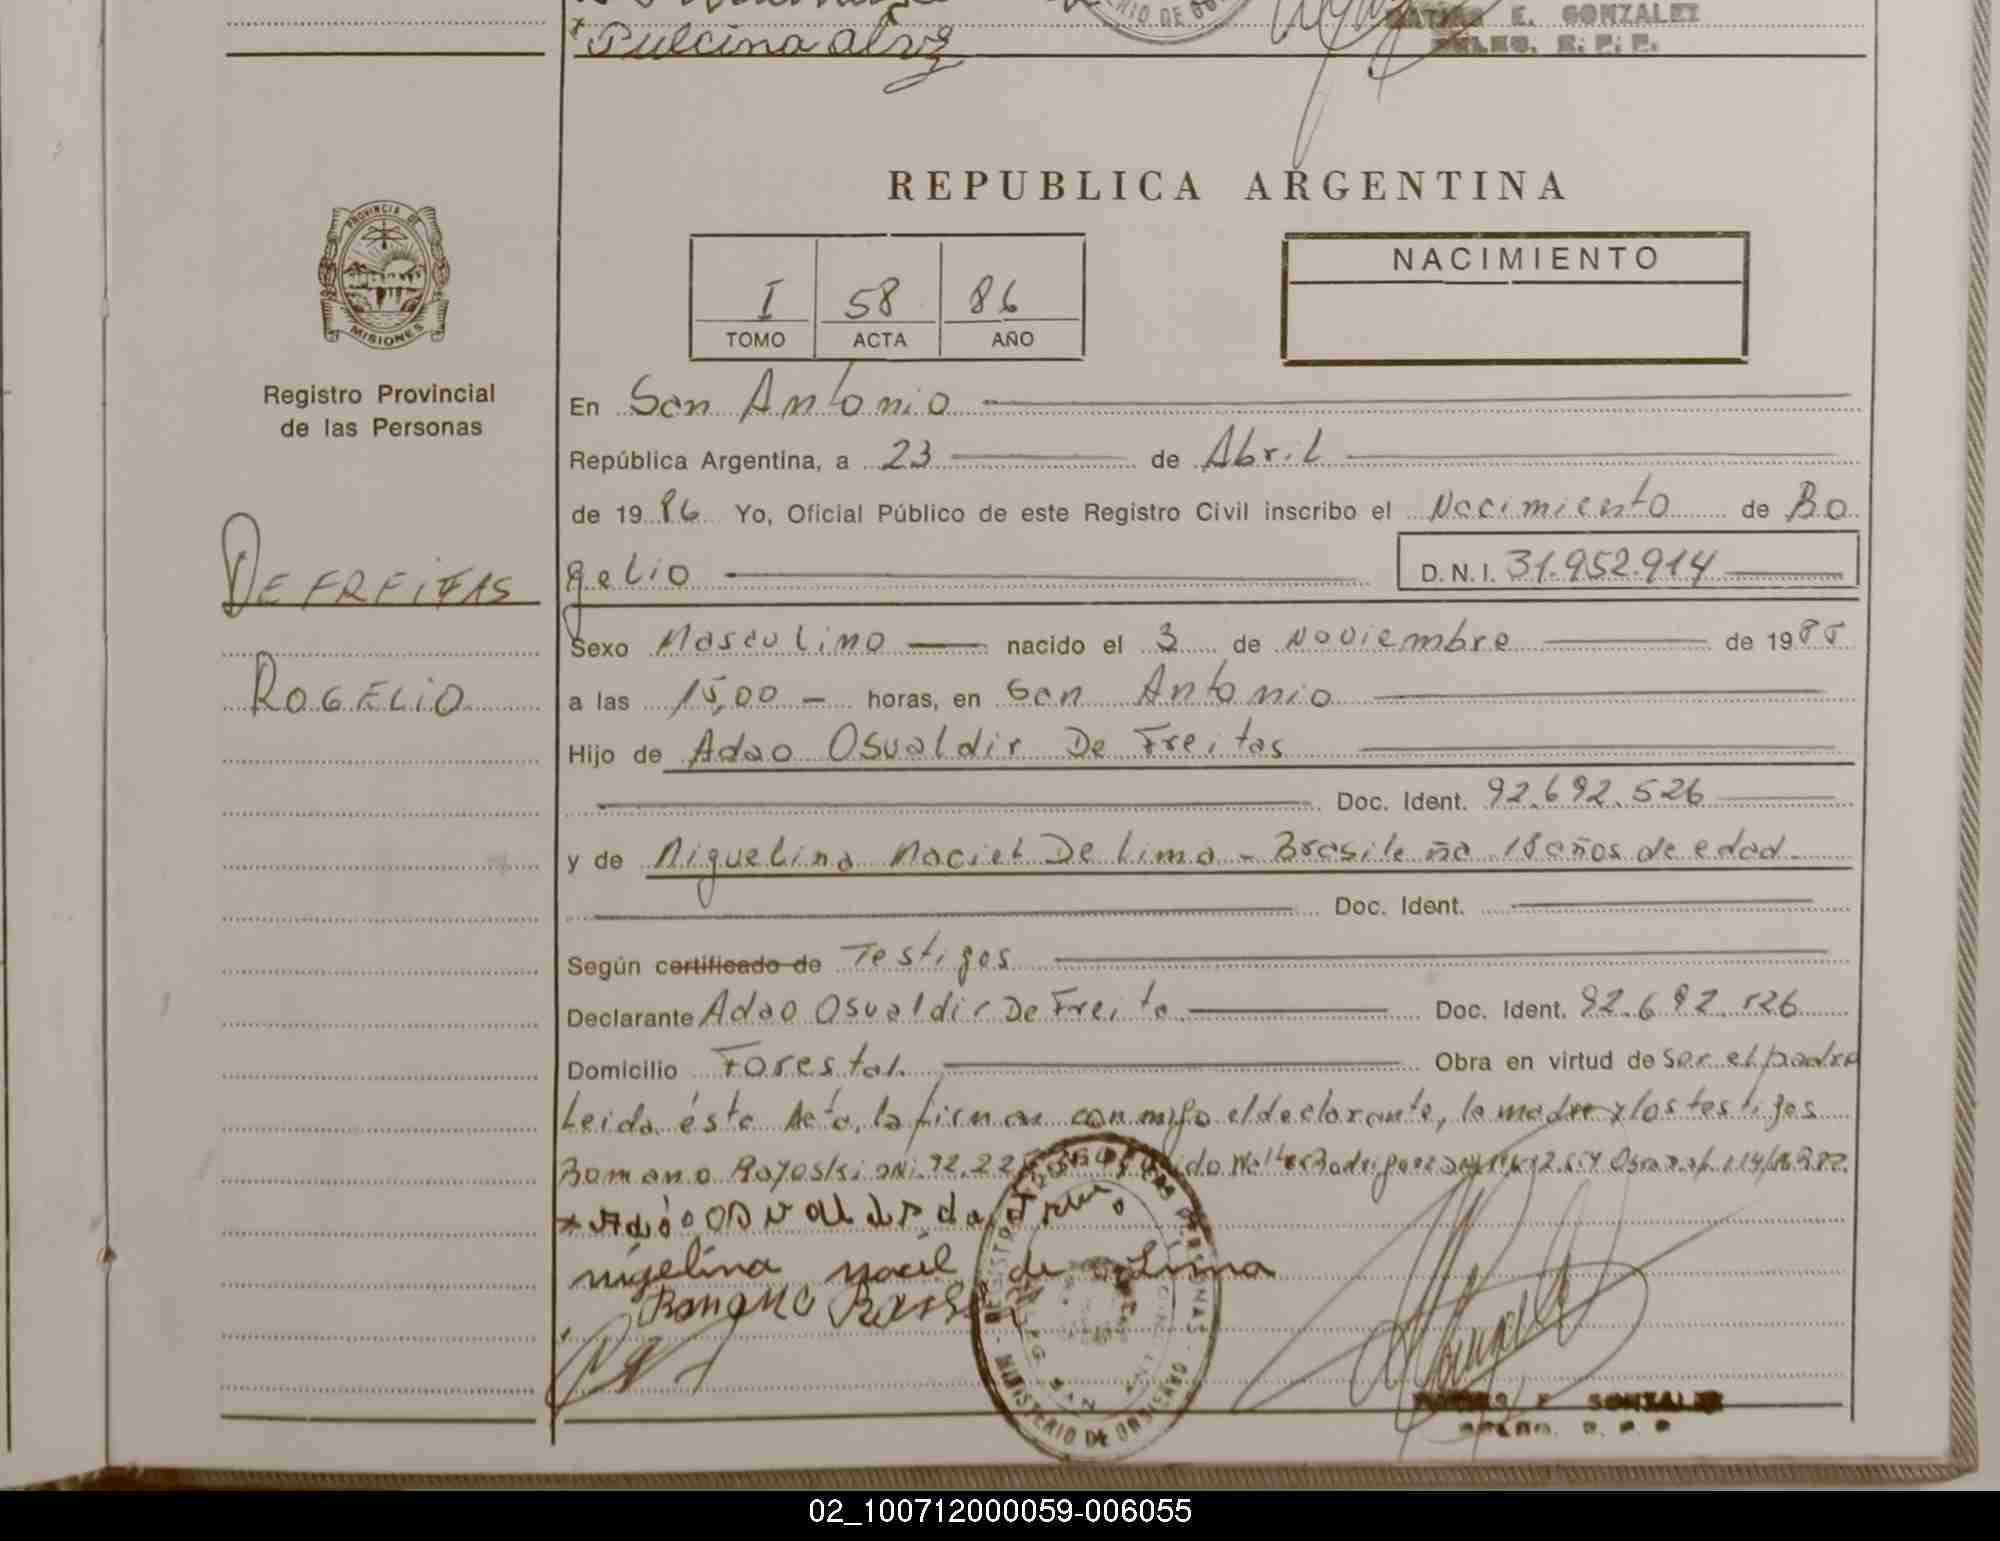 Pulcina alvz
E. GONZALEZ
PROVINCIA DE
MISIONES
Registro Provincial
de las Personas
DE FREITAS
ROGELIO
REPUBLICA ARGENTINA
I 58 86
TOMO ACTA AÑO
NACIMIENTO
En San Antonio
República Argentina, a 23 de Abril
de 1986 Yo, Oficial Público de este Registro Civil inscribo el Nacimiento de Ro
gelio D.N.I. 31.952.914
Sexo Masculino nacido el 3 de Noviembre de 1985
a las 15,00 - horas, en San Antonio
Hijo de Adao Osualdir De Freitas
Doc. Ident. 92.692.526
y de Miguelina Maciel De Lima - Brasileña 18 años de edad -
Doc. Ident.
Según certificado de Testigos
Declarante Adao Osualdir De Freita Doc. Ident. 92.692.526
Domicilio Forestal. Obra en virtud de Ser el padre
Leida ésta Acta, la firman conmigo el declarante, la madre y los testigos
Romano DNI. 92.22
migelina maciel de Lima
Romano
MINISTERIO DE GOBIERNO
E GONZALEZ
02_100712000059-006055